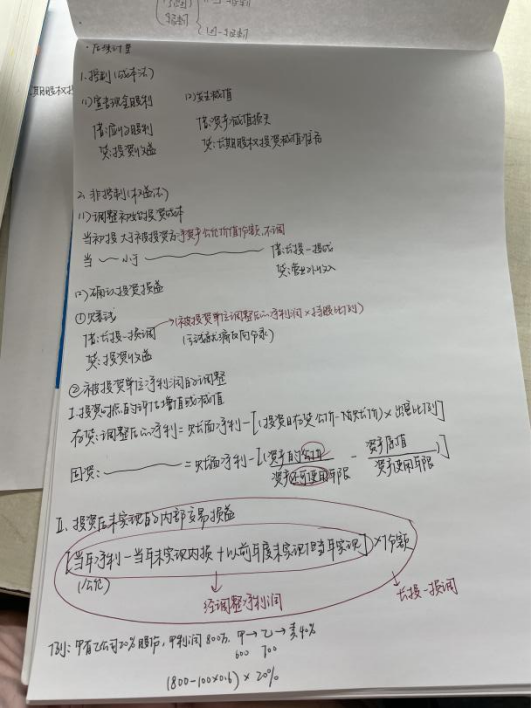 后续计量
1.控制(成本法)
(1)宣告现金股利 (2)发生减值
借:应收股利 借:资产减值损失
贷:投资收益 贷:长期股权投资减值准备
2.非控制(权益法)
(1)调整初始投资成本
当初投大于被投资方净资产公允价值份额,不调
当 小于 借:长投-投成
贷:营业外收入
(2)确认投资损益
①账务
借:长投-损调 →(被投资单位调整后净利润×持股比例)
贷:投资收益
②被投资单位净利润的调整
I.投资时点的评估增值或减值
存货:调整后净利=账面净利-[(投资日存货公价-账面价)×出售比例]
固资: =账面净利-[(资产的公允/资产还可使用年限 - 资产原值/资产使用年限)]
II.投资后未实现的内部交易损益
[当年净利-当年未实现内损+以前年度未实现但当年实现]×份额
(公允)
经调整净利润 长投-损调
例:甲有乙公司20%股份,甲利润800万,甲→乙→卖40%
600 700
(800-100×0.6)×20%